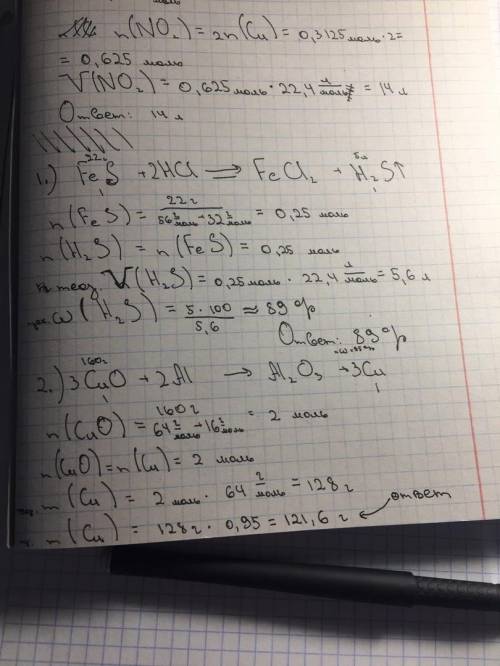 n(NO₂) = 2n(Cu) = 0,3125 моль · 2 =
= 0,625 моль
V(NO₂) = 0,625 моль · 22,4 л/моль = 14 л
Ответ: 14 л
22г 5л
1.) FeS + 2HCl ⟹ FeCl₂ + H₂S↑
1 1
n(FeS) = 22г / 56 г/моль + 32 г/моль = 0,25 моль
n(H₂S) = n(FeS) = 0,25 моль
теор. V(H₂S) = 0,25 моль · 22,4 л/моль = 5,6 л
ω(H₂S) = 5 · 100 / 5,6 ≈ 89%
Ответ: 89%
160г
2.) 3CuO + 2Al → Al₂O₃ + 3Cu
1 1
n(CuO) = 160г / 64 г/моль + 16 г/моль = 2 моль
n(CuO) = n(Cu) = 2 моль
m(Cu) = 2 моль · 64 г/моль = 128г
m(Cu) = 128г · 0,95 = 121,6 г ← ответ